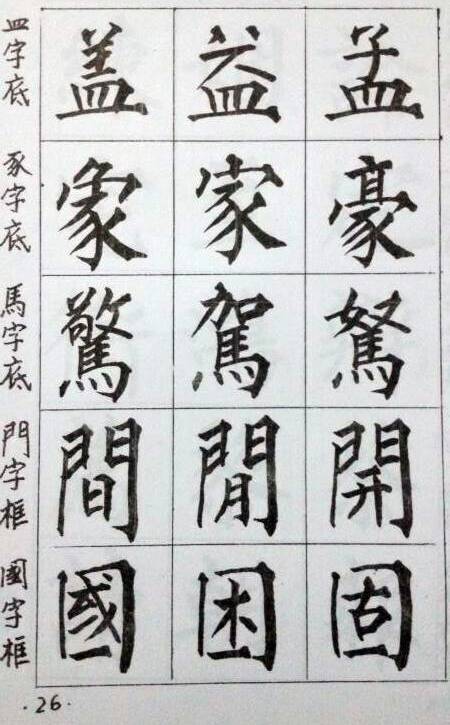 皿字底 盖 益 孟
豕字底 象 家 豪
馬字底 驚 駕 駑
門字框 間 閒 開
國字框 國 困 固
·26·